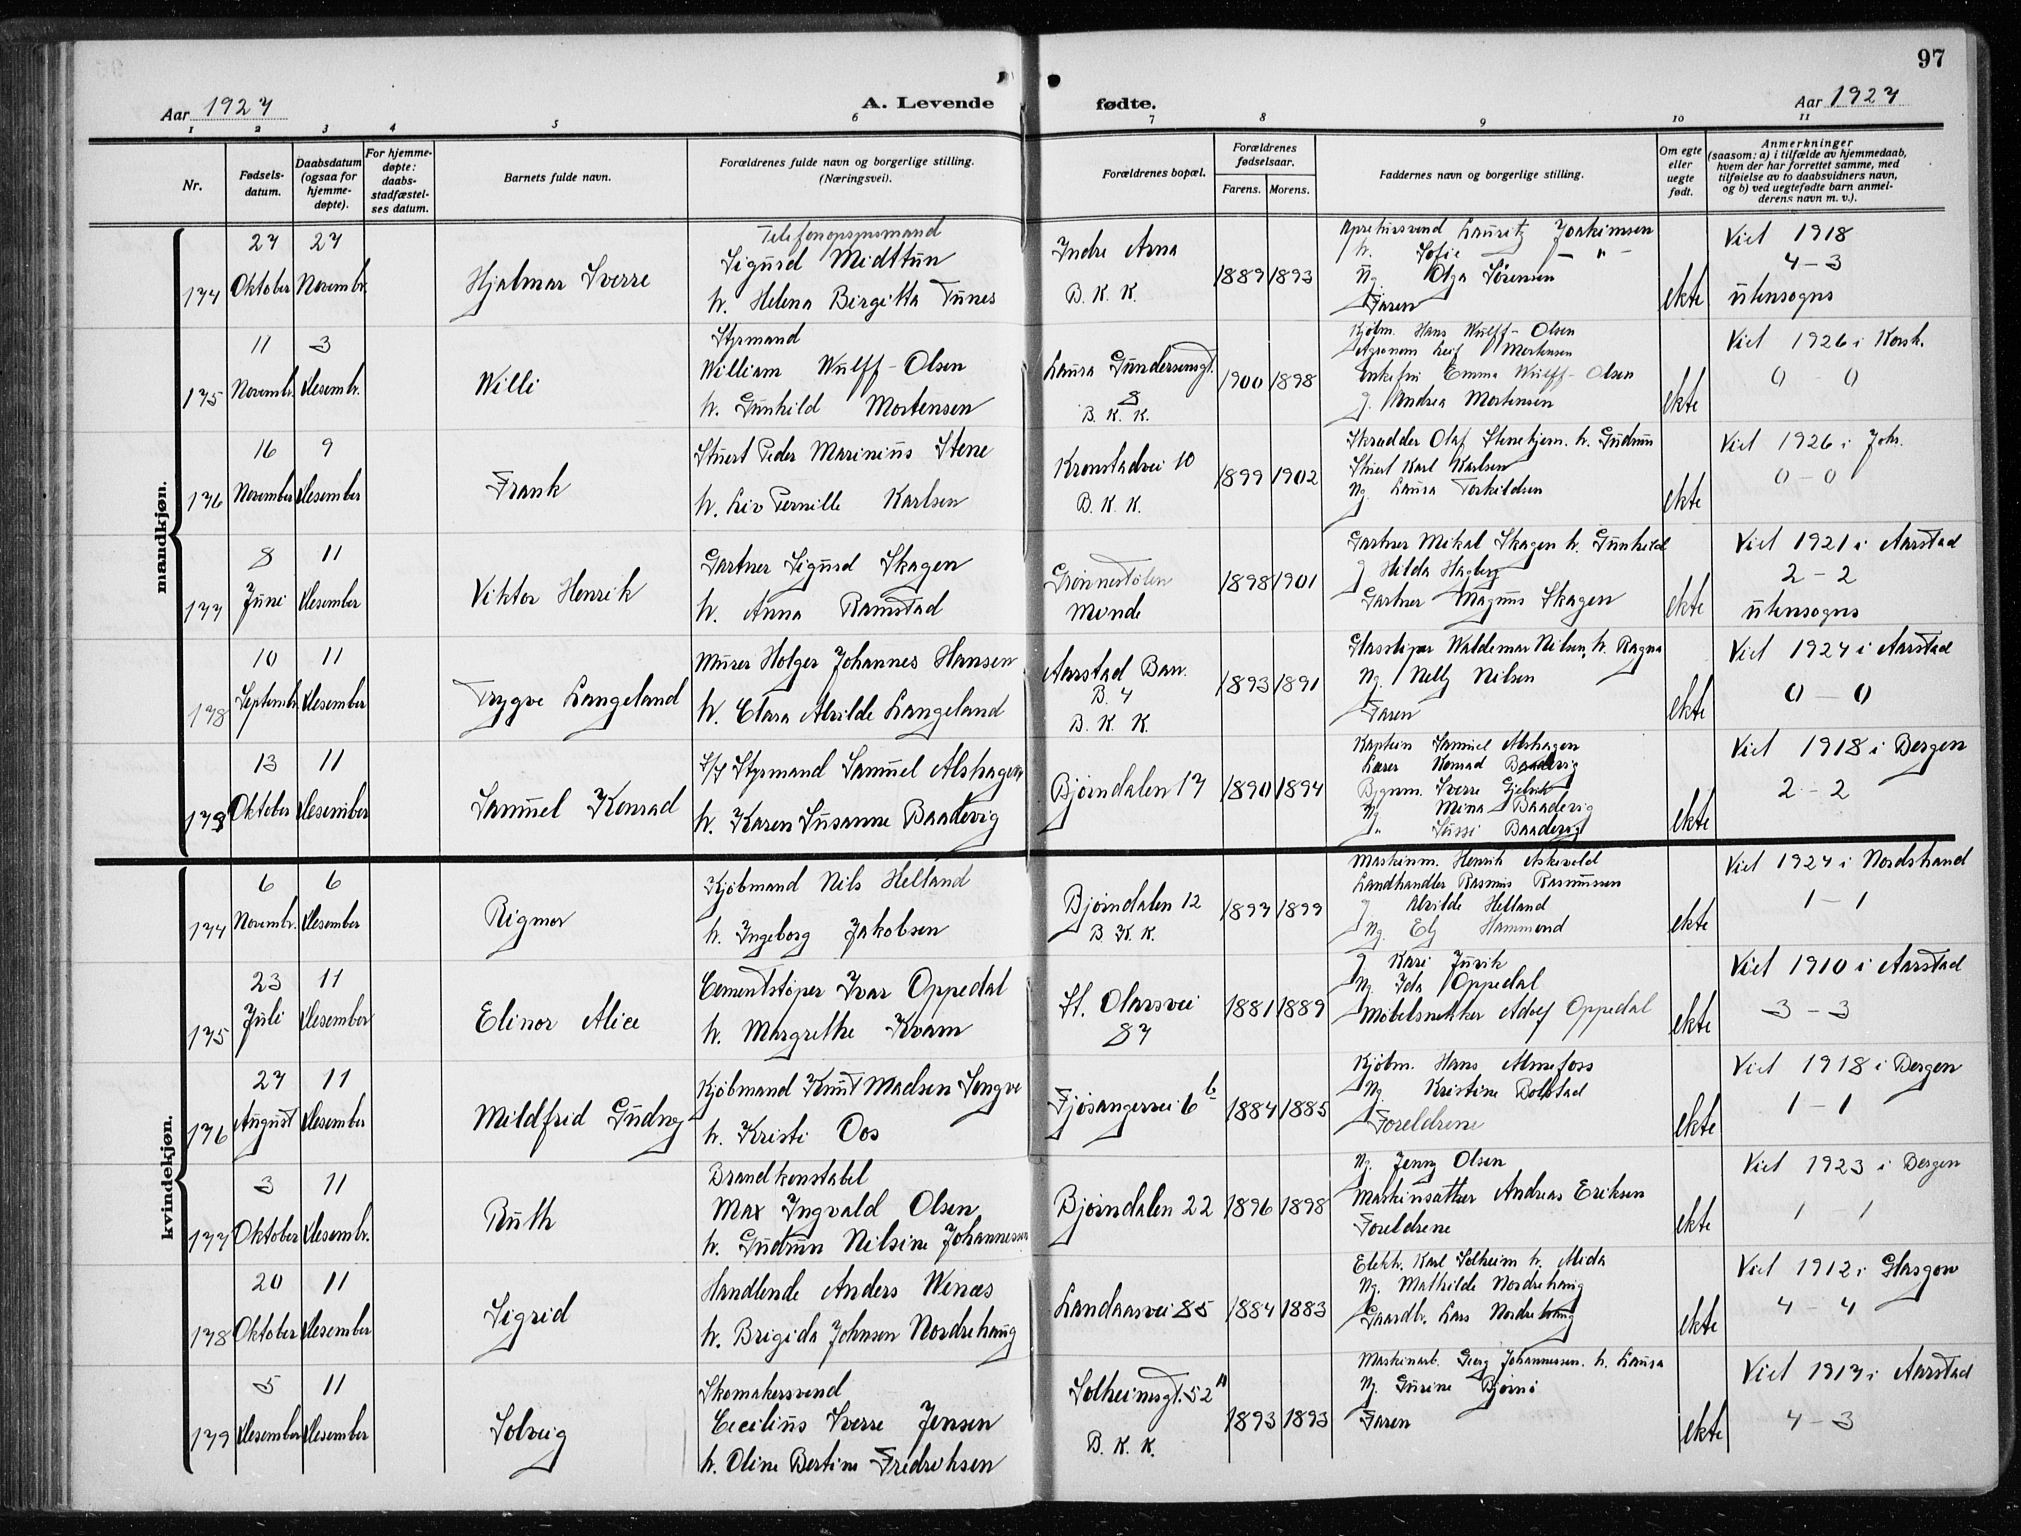 97
Aar 1927
A. Levende
fødte.
Aar 1927
1 2 3 4 5 6 7 8 9 10 11
Nr.
Fødsels-
datum.
Daabsdatum
(ogsaa for
hjemme-
døpte).
For hjemme-
døpte:
daabs-
stadfæstel-
ses datum.
Barnets fulde navn.
Forældrenes fulde navn og borgerlige stilling.
(Næringsvei).
Forældrenes bopæl.
Forældrenes
fødselsaar.
Farens. Morens.
Faddernes navn og borgerlige stilling.
Om egte
eller
uegte
født.
Anmerkninger
(saasom: a) i tilfælde av hjemmedaab,
hvem der har forrettet samme, med
tilføielse av to daabsvidners navn,
og b) ved uegtefødte barn anmel-
derens navn m. v.).
mandkjøn.
174
27
Oktober
27
Novembr.
Hjalmar Sverre
Telefonopsynsmand
Sigurd Midttun
h. Helena Birgitta Tunes
Indre Arna
B. K. K.
1889 1893
Lauritz Joakimsen
h. Sofie — " —
Ug. Olga Sørensen
Faren
ekte
Viet 1918
4 – 3
utensogns
175
11
Novembr.
3
Desembr.
Willi
Styrmand
William Wulff-Olsen
h. Gunhild Mortensen
Laura Gundersensgt.
8
B. K. K.
1900 1898
Kjøbm. Hans Wulff-Olsen
Agronom Leif Mortensen
Enkefru Emma Wulff-Olsen
g. Andrea Mortensen
ekte
Viet 1926 i Korsk.
0 – 0
176
16
November
9
Desember
Frank
Stuert Peder Marinius Stene
h. Liv Pernille Karlsen
Kronstadvei 10
B. K. K.
1899 1902
Skrædder Olaf Stenehjem. h. Gudrun
Stuert Karl Karlsen
Ug. Laura Torkildsen
ekte
Viet 1926 i Joh.
0 – 0
177
8
Juni
11
Desember
Viktor Henrik
Gartner Sigurd Skagen
h. Anna Ramstad
Grønnestølen
Minde
1898 1901
Gartner Mikal Skagen h. Gunhild
g. Hilda Hagberg
Gartner Magnus Skagen
ekte
Viet 1921 i Aarstad
2 – 2
utensogns
178
10
Septembr.
11
Desember
Trygve Langeland
Murer Holger Johannes Hansen
h. Clara Alvilde Langeland
Aarstad Bar.
B. 4
B. K. K.
1893 1891
Glassliper Waldemar Nilsen, h. Ragna
Ug. Nelly Nilsen
Faren
ekte
Viet 1927 i Aarstad
0 – 0
179
13
Oktober
11
Desember
Samuel Konrad
S/S Styrmand Samuel Alshagen
h. Karen Susanne Baadevig
Bjørndalen 17
1890 1894
Kaptein Samuel Alshagen
Lærer Konrad Baadevig
Bygnm. Sverre
Ug. Mina Baadevig
" Sussi Baadevig
ekte
Viet 1918 i Bergen
2 – 2
kvindekjøn.
174
6
Novembr.
6
Desember
Rigmor
Kjøbmand Nils Helland
h. Ingeborg Jakobsen
Bjørndalen 12
B. K. K.
1897 1899
Maskinm. Henrik Askevold
Landhandler Rasmus Rasmussen
g. Alvilde Helland
Ug. Ely Hammond
ekte
Viet 1924 i Nordstrand
1 – 1
175
23
Juli
11
Desember
Elinor Alice
Cementstøper Ivar Oppedal
h. Margrethe Kvam
St. Olavsvei
87
1881 1889
g. Kari Juvik
Ug. Ida Oppedal
Møbelsnekker Adolf Oppedal
ekte
Viet 1910 i Aarstad
3 – 3
176
27
August
11
Desember
Mildfrid Gudny
Kjøbmand Knut Madsen Songve
h. Kristi Oos
Fjøsangervei 6 b
1884 1885
Kjøbm. Hans Almefoss
Ug. Kristine Bolstad
Foreldrene
ekte
Viet 1918 i Bergen
1 – 1
177
3
Oktober
11
Desembr.
Ruth
Brandkonstabel
Max Ingvald Olsen
h. Gudrun Nilsine Johannessen
Bjørndalen 22
1896 1898
Ug. Jenny Olsen
Maskinsætter Andreas Eriksen
Foreldrene
ekte
Viet 1923 i Bergen
1 – 1
178
20
Oktober
11
Desember
Sigrid
Handlende Anders Wenæs
h. Brigida Johnsen Nordrehaug
Landaasvei 85
1884 1883
Elektr. Karl Solheim h. Alida
Ug. Mathilde Nordrehaug
Gaardbr. Lars Nordrehaug
ekte
Viet 1912 i Glasgow
4 – 4
179
5
Desember
11
Desember
Solveig
Skomakersvend
Cecilius Sverre Jensen
h. Oline Bertine Fredriksen
Solheimsgt. 52 II
B. K. K.
1893 1893
Maskinarb. Georg Johannessen. h. Laura
Ug. Gurine Bjørnø
Faren
ekte
Viet 1917 i Aarstad
4 – 3